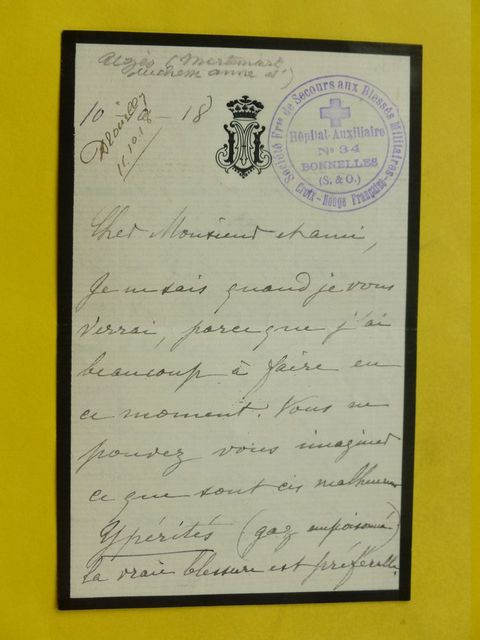 Uzès (Mortemart
duchesse Anne d')
10 18
15.10.18
Société Frse de Secours aux Blessés Militaires
Hôpital Auxiliaire
No 34
BONNELLES
(S. & O.)
Croix-Rouge Française
Cher Monsieur et ami,
Je ne sais quand je vous
verrai, parce que j'ai
beaucoup à faire en
ce moment. Vous ne
pouvez vous imaginer
ce que sont ces malheureux
Ypérités (gaz empoisonné)
la vraie blessure est préférable.